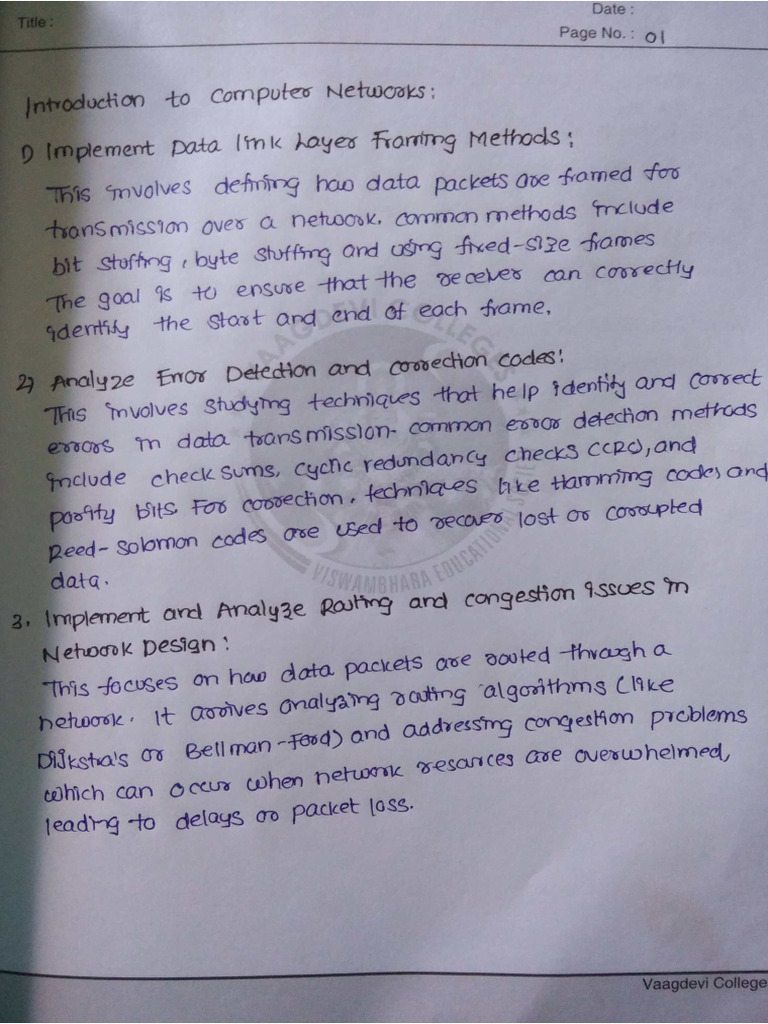 Title :
Date :
Page No. : 01
Introduction to Computer Networks:
1) Implement Data link Layer Framing Methods:
This involves defining how data packets are framed for
transmission over a network. common methods include
bit stuffing, byte stuffing and using fixed-size frames
The goal is to ensure that the receiver can correctly
identify the start and end of each frame.
2) Analyze Error Detection and correction codes:
This involves studying techniques that help identity and correct
errors in data transmission. common error detection methods
include check sums, cyclic redundancy checks (CRC), and
parity bits. For correction, techniques like Hamming codes and
Reed-Solomon codes are used to recover lost or corrupted
data.
3. Implement and Analyze Routing and congestion issues in
Network Design:
This focuses on how data packets are routed through a
network. It arrives analyzing routing algorithms (like
Dijkstra's or Bellman-Ford) and addressing congestion problems
which can occur when network resources are overwhelmed,
leading to delays or packet loss.
VAAGDEVI COLLEGES
VISWAMBHARA EDUCATIONAL
Vaagdevi College